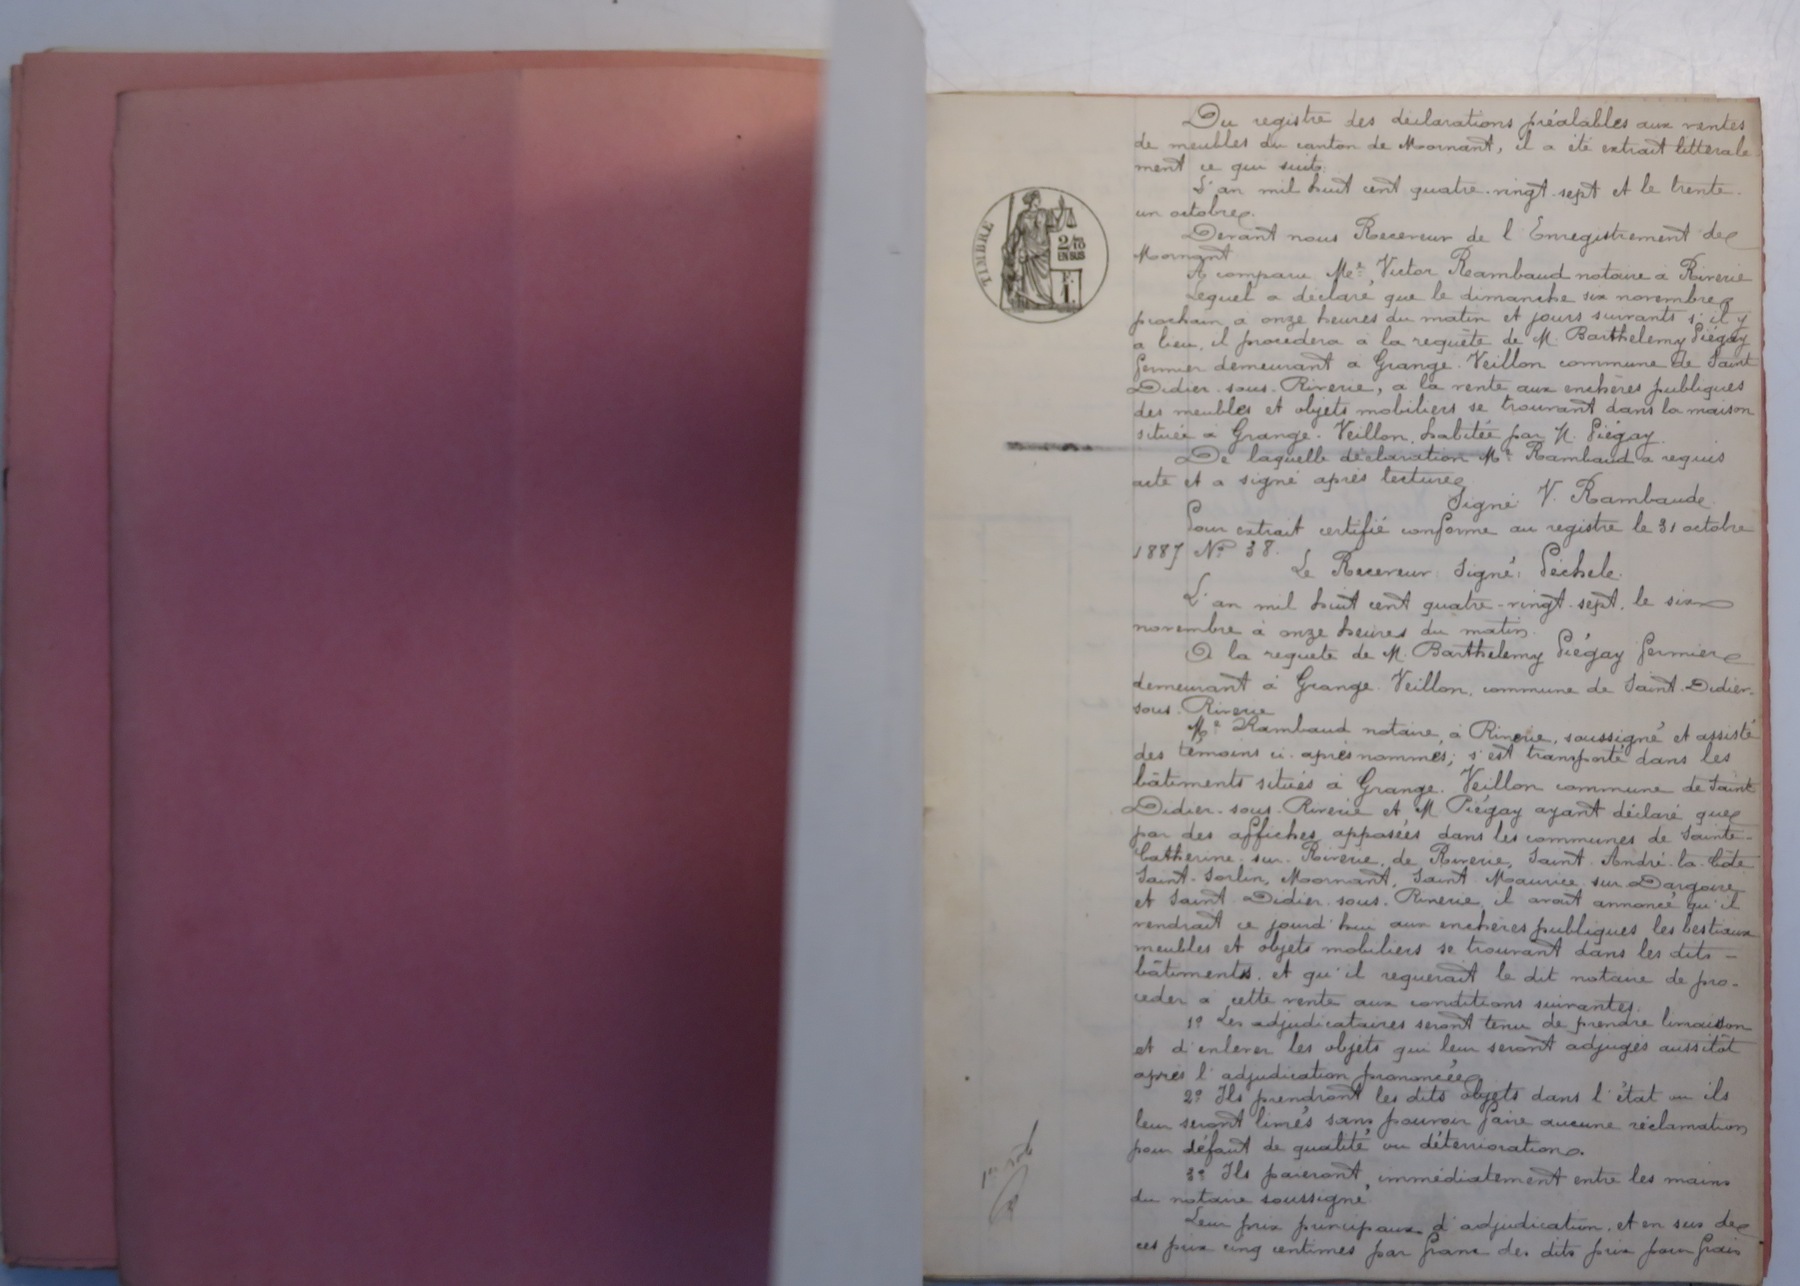 Du registre des déclarations préalables aux ventes
de meubles du canton de Mornant, il a été extrait littérale
ment ce qui suit.
L'an mil huit cent quatre-vingt-sept et le trente-
un octobre.
Devant nous Receveur de l'Enregistrement de
Mornant
A comparu Me Victor Rambaud notaire à Riverie
Lequel a déclaré que le dimanche six novembre
prochain à onze heures du matin et jours suivants s'il y
a lieu, il procèdera à la requête de M. Barthelemy Piégay
fermier demeurant à Grange-Veillon commune de Saint
Didier-sous-Riverie, à la vente aux enchères publiques
des meubles et objets mobiliers se trouvant dans la maison
située à Grange-Veillon, habitée par M. Piégay.
De laquelle déclaration Me Rambaud a requis
acte et a signé après lecture
Signé: V. Rambaud.
Pour extrait certifié conforme au registre le 31 octobre
1887 No 38.
Le Receveur, Signé: Péchele.
L'an mil huit cent quatre-vingt-sept, le six
novembre à onze heures du matin.
A la requête de M. Barthelemy Piégay fermier
demeurant à Grange-Veillon, commune de Saint-Didier-
sous-Riverie
Me Rambaud notaire à Riverie, soussigné et assisté
des témoins ci-après nommés; s'est transporté dans les
bâtiments situés à Grange-Veillon commune de Saint
Didier-sous-Riverie et M. Piégay ayant déclaré que
par des affiches apposées dans les communes de Sainte-
Catherine-sur-Riverie, de Riverie, Saint-André-la-Côte
Saint-Sorlin, Mornant, Saint Maurice-sur-Dargoire
et Saint-Didier-sous-Riverie, il avait annoncé qu'il
vendrait ce jourd'hui aux enchères publiques les bestiaux
meubles et objets mobiliers se trouvant dans les dits-
bâtiments, et qu'il requerait le dit notaire de pro-
céder à cette vente aux conditions suivantes.
1o Les adjudicataires seront tenu de prendre livraison
et d'enlever les objets qui leur seront adjugés aussitôt
après l'adjudication prononcée
2o Ils prendront les dits objets dans l'état où ils
leur seront livrés sans pouvoir faire aucune réclamation
pour défaut de qualité ou détérioration.
3o Ils paieront immédiatement entre les mains
du notaire soussigné
Leur prix principaux d'adjudication, et en sus de
ces prix cinq centimes par franc des dits prix pour frais
TIMBRE
2/10
EN SUS
F.
1.